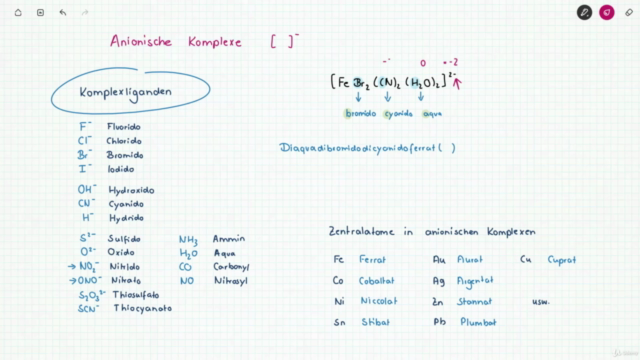 Anionische Komplexe [ ]⁻
Komplexliganden
F⁻ Fluorido
Cl⁻ Chlorido
Br⁻ Bromido
I⁻ Iodido
OH⁻ Hydroxido
CN⁻ Cyanido
H⁻ Hydrido
S²⁻ Sulfido
O²⁻ Oxido
→ NO₂⁻ Nitrido
→ ONO⁻ Nitrato
S₂O₃²⁻ Thiosulfato
SCN⁻ Thiocyanato
NH₃ Ammin
H₂O Aqua
CO Carbonyl
NO Nitrosyl
-1 0 = -2
[Fe Br₂ (CN)₂ (H₂O)₂]²⁻
bromido cyanido aqua
Diaquadibromidodicyanidoferrat ( )
Zentralatome in anionischen Komplexen
Fe Ferrat Au Aurat Cu Cuprat
Co Cobaltat Ag Argentat
Ni Niccolat Zn Stannat usw.
Sn Stibat Pb Plumbat